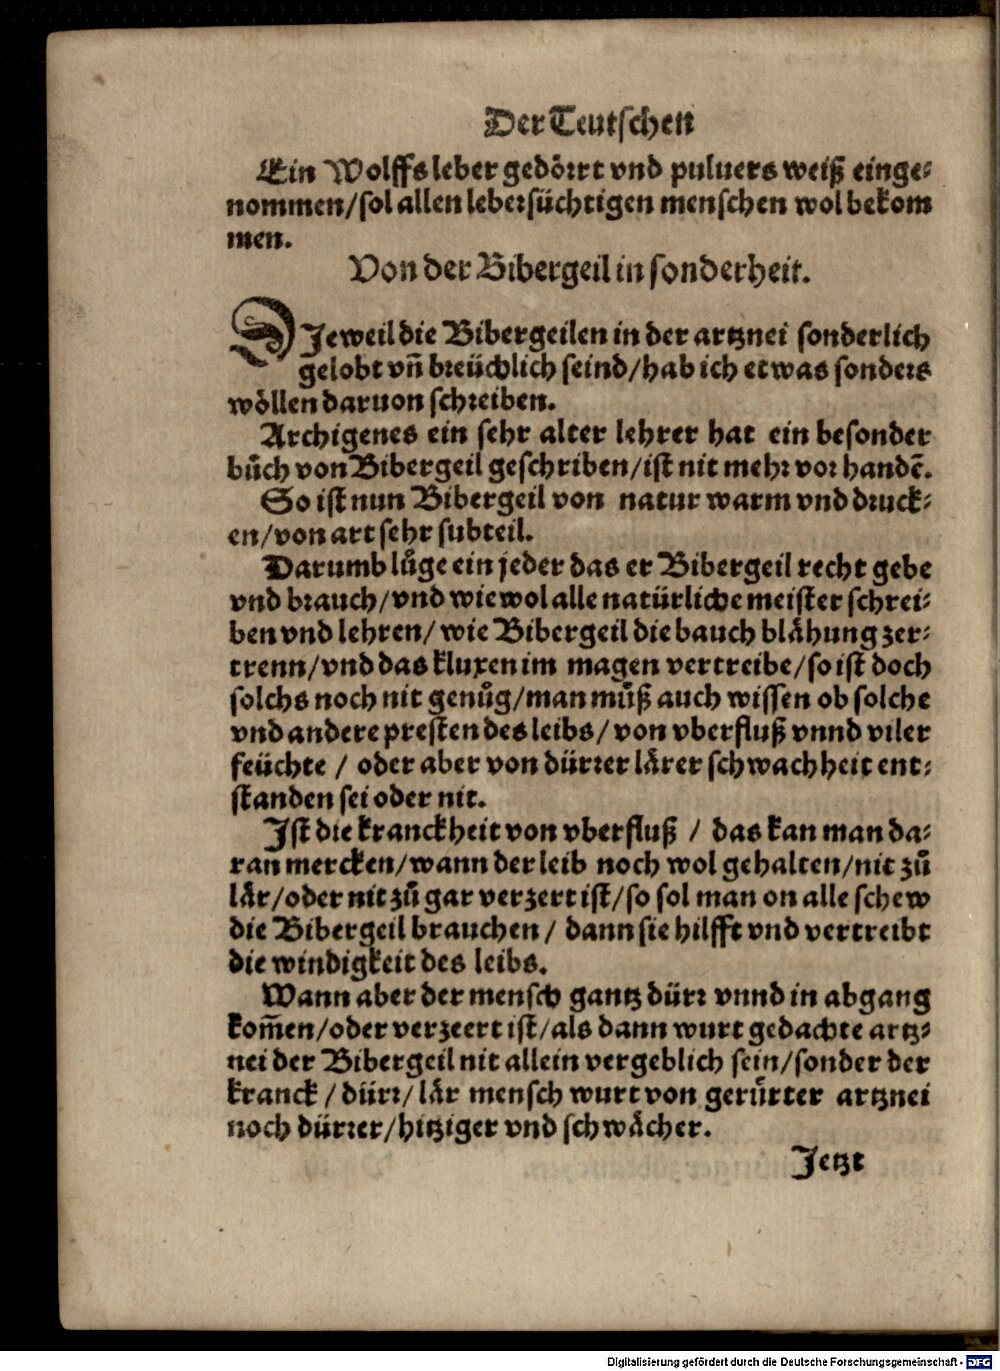 Der Teutschen
Ein Wolffs leber gedoͤrrt vnd puluers weiß einge⸗
nommen/sol allen lebersüchtigen menschen wol bekom
men.
Von der Bibergeil in sonderheit.
DJeweil die Bibergeilen in der artznei sonderlich
gelobt vñ breüchlich seind/hab ich etwas sonders
woͤllen daruon schreiben.
Archigenes ein sehr alter lehrer hat ein besonder
buͦch von Bibergeil geschriben/ist nit mehr vor handẽ.
So ist nun Bibergeil von natur warm vnd druck⸗
en/von art sehr subteil.
Darumb luͦge ein jeder das er Bibergeil recht gebe
vnd brauch/vnd wiewol alle natürliche meister schrei⸗
ben vnd lehren/wie Bibergeil die bauch blaͤhung zer⸗
trenn/vnd das kluxen im magen vertreibe/so ist doch
solchs noch nit genuͦg/man muͦß auch wissen ob solche
vnd andere presten des leibs/von vberfluß vnnd viler
feüchte / oder aber von dürrer laͤrer schwachheit ent⸗
standen sei oder nit.
Jst die kranckheit von vberfluß / das kan man da⸗
ran mercken/wann der leib noch wol gehalten/nit zuͦ
laͤr/oder nit zuͦ gar verzert ist/so sol man on alle schew
die Bibergeil brauchen / dann sie hilfft vnd vertreibt
die windigkeit des leibs.
Wann aber der mensch gantz dürr vnnd in abgang
kom̃en/oder verzeert ist/als dann wurt gedachte artz⸗
nei der Bibergeil nit allein vergeblich sein/sonder der
kranck / dürr/ laͤr mensch wurt von geruͤrter artznei
noch dürrer/hitziger vnd schwaͤcher.
Jetzt
Digitalisierung gefördert durch die Deutsche Forschungsgemeinschaft - DFG